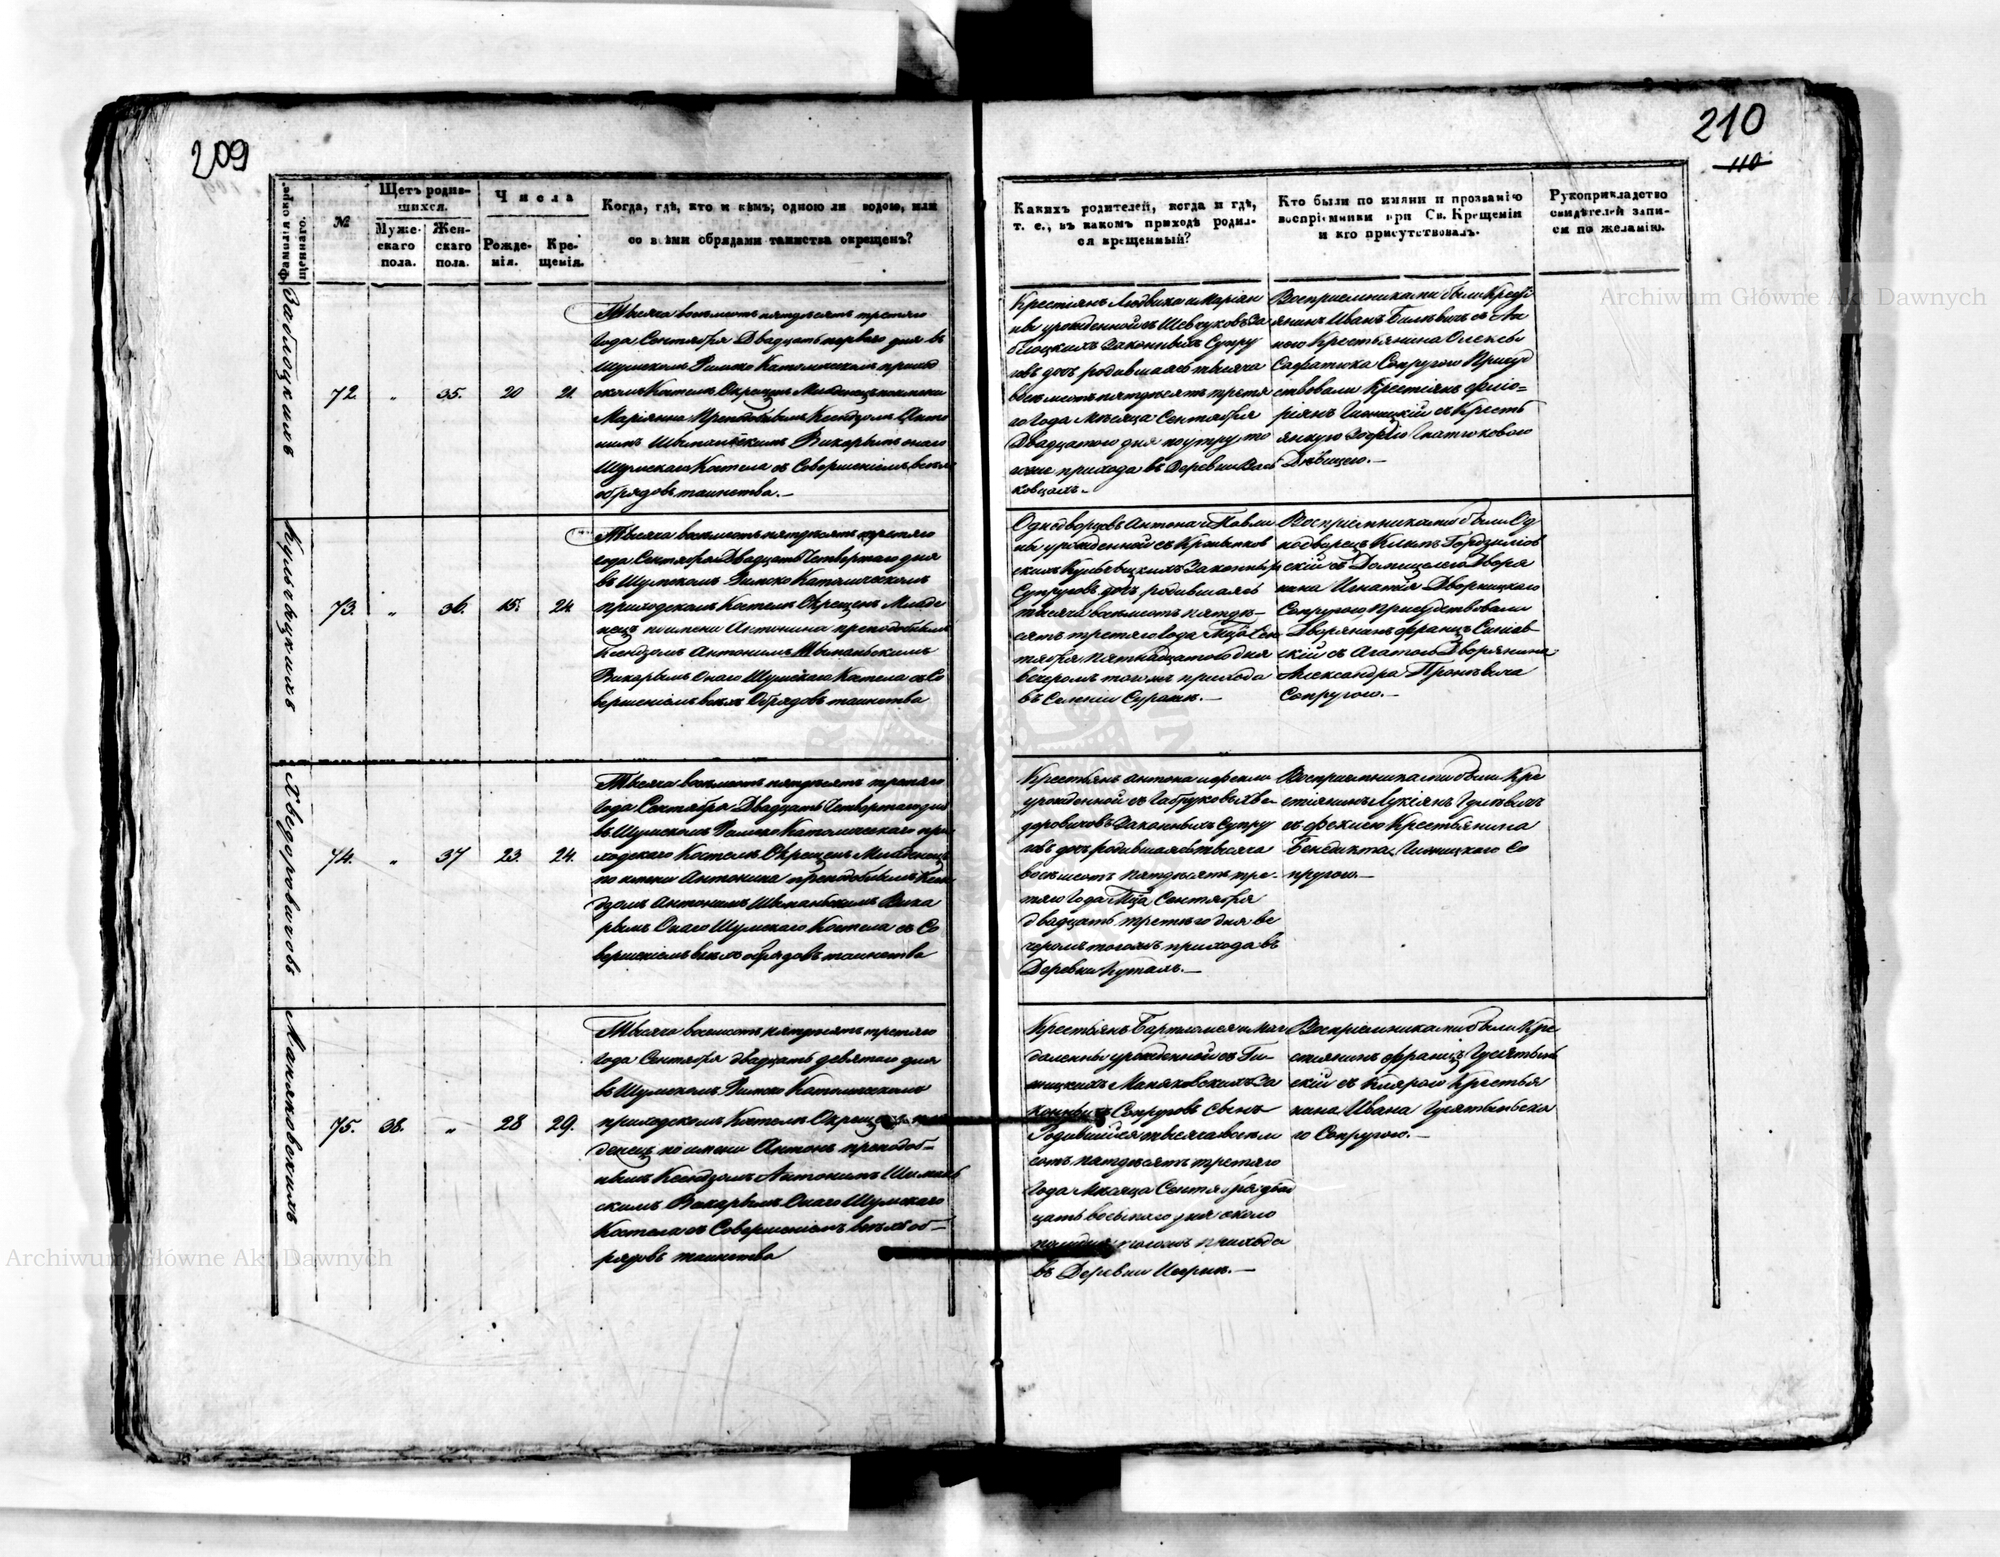 209
210
110
Фамилія окрещеннаго.
№
Щетъ родившихся.
Мужескаго пола.
Женскаго пола.
Числа
Рожденія.
Крещенія.
Когда, гдѣ, кто и кѣмъ; одною ли водою, или
со всѣми обрядами таинства окрещенъ?
Каких родителей, когда и гдѣ,
т. е., въ какомъ приходѣ родил-
ся крещенный?
Кто были по имяни и прозванію
воспріемники при Св. Крещеніи
и кто присутствовалъ.
Рукоприкладство
свидѣтелей записи по желанію.
Заблоцкихъ
72
„
35.
20
21.
Тысяча восемсотъ пятдесятъ третяго
года Сентября Двадцать перваго дня въ
Шумскомъ Римско Католическомъ приход
скомъ Костелѣ Окрещенъ Младенецъ по имени
Маріянна Преподобнымъ Ксендзомъ Анто
нимъ Шиманскимъ Викарымъ онаго
Шумскаго Костела съ Совершеніемъ всѣхъ
обрядовъ таинства.—
Крестіянъ Людвика и Маріян
ны урожденной съ Шевчуковъ За
блоцкихъ Законныхъ Супру
говъ дочь родившаяся тысяча
восемсотъ пятдесятъ третя
го года Мѣсяца Сентября
Двадцатого дня по утру то
гоже прихода въ Деревни
ковцахъ.—
Восприемниками были Крестя
янинъ Иванъ с
ною Крестьянина Олексы
Сопругою Присуд
ствовали Крестіянъ Фліо-
ріянъ съ Кресть
янкую Зофіею Гнатюковою
Дѣвицею.—
73.
„
36.
15.
24
Тысяча восемсотъ пятдесятъ третяго
года Сентября Двадцать Четвертаго дня
въ Шумскомъ Римско Католическомъ
приходскомъ Костелѣ Окрещенъ Младе
нецъ по имени Антонина преподобнымъ
Ксендзомъ Антонимъ Шиманьскимъ
Викарымъ Онаго Шумскаго Костела съ Со
вершеніемъ всѣхъ Обрядовъ таинства
Однодворцовъ Антона и Павли
ны урожденной съ
скихъ Законныхъ
Супруговъ дочь родившаяся
тысяча восемсотъ пятде-
сятъ третяго года Мца Сен
тября пятнадцатого дня
вечеромъ тогожъ прихода
въ Селеніи Суражѣ.—
Восприемниками были Од
нодворецъ
скій съ Дворя
нина Игнатія Дворницкаго
Сопругою, Присудствовали
Дворянинъ Францъ
скій съ Агатою Дворянина
Александра
Сопругою.—
Хведоровичовъ
74.
„
37
23.
24.
Тысяча восемсотъ пятдесятъ третяго
года Сентября Двадцать Четвертаго дня
въ Шумскомъ Римско Католическаго при
ходскаго Костелѣ Окрещенъ Младенецъ
по имени Антонина преподобнымъ Ксен
дзомъ Антонимъ Шиманьскимъ Вика
рымъ Онаго Шумскаго Костела съ Со
вершеніемъ всѣхъ обрядовъ таинства
Крестьянъ Антона и Фекли
урожденной съ Габруковъ Хве
доровичовъ Законныхъ Супру
говъ дочь родившаяся тысяча
восемсотъ пятдесятъ тре-
тяго года Мца Сентября
двадцать третьего дня ве
черомъ тогожъ прихода въ
Деревни Кутахъ.—
Восприемниками были Кре
стіянинъ Лукіянъ
съ Феклею Крестьянина
Бенедикта Со
пругою.—
Маняковскихъ
75.
38.
„
28
29.
Тысяча восемсотъ пятдесятъ третяго
года Сентября двадцать девятаго дня
въ Шумскомъ Римско Католическомъ
приходскомъ Костелѣ Окрещенъ мла
денецъ по имени Антонъ преподоб-
нымъ Ксендзомъ Антонимъ Шимань
скимъ Викарымъ Онаго Шумскаго
Костела съ Совершеніемъ всѣхъ об-
рядовъ таинства
Крестьянъ Бартломея и Маг
далены урожденной съ
Маняковскихъ За
конныхъ Сопруговъ сынъ
Родившійся тысяча восем
сотъ пятдесятъ третяго
года Мѣсяца Сентября два
цать восьмаго дня около
полудня тогожъ прихода
въ Деревни
Восприемниками были Кре
стянинъ Францъ
скій съ Клярою Крестья
нина Ивана
го Сопругою.—
Archiwum Główne Akt Dawnych
Archiwum Główne Akt Dawnych